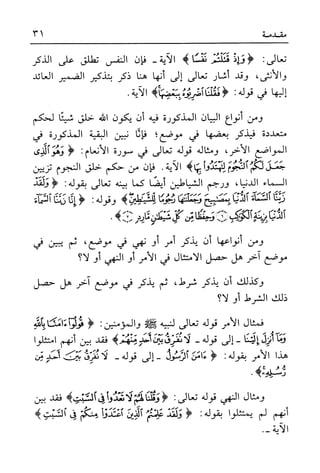 مقدمة ٣١
تعالى: ﴿ وَإِذْ قَتَلْتُمْ نَفْسًا ﴾ الآية ـ فإن النفس تطلق على الذكر
والأنثى، وقد أشار تعالى إلى أنها هنا ذكر بتذكير الضمير العائد
إليها في قوله: ﴿ فَقُلْنَا اضْرِبُوهُ بِبَعْضِهَا ﴾ الآية.
ومن أنواع البيان المذكورة فيه أن يكون الله خلق شيئًا لحكم
متعددة فيذكر بعضها في موضع؛ فإنَّا نبين البقية المذكورة في
المواضع الأخر، ومثاله قوله تعالى في سورة الأنعام: ﴿ وَهُوَ الَّذِي
جَعَلَ لَكُمُ النُّجُومَ لِتَهْتَدُوا بِهَا ﴾ الآية. فإن من حكم خلق النجوم تزيين
السماء الدنيا، ورجم الشياطين أيضًا كما بينه تعالى بقوله: ﴿ وَلَقَدْ
زَيَّنَّا السَّمَاءَ الدُّنْيَا بِمَصَابِيحَ وَجَعَلْنَاهَا رُجُومًا لِلشَّيَاطِينِ ﴾ وقوله: ﴿ إِنَّا زَيَّنَّا السَّمَاءَ
الدُّنْيَا بِزِينَةٍ الْكَوَاكِبِ ۝ وَحِفْظًا مِنْ كُلِّ شَيْطَانٍ مَارِدٍ ۝ ﴾.
ومن أنواعها أن يذكر أمر أو نهي في موضع، ثم يبين في
موضع آخر هل حصل الامتثال في الأمر أو النهي أو لا؟
وكذلك أن يذكر شرط، ثم يذكر في موضع آخر هل حصل
ذلك الشرط أو لا؟
فمثال الأمر قوله تعالى لنبيه ﷺ والمؤمنين: ﴿ قُولُوا آمَنَّا بِاللَّهِ
وَمَا أُنْزِلَ إِلَيْنَا ـ إلى قوله ـ لَا نُفَرِّقُ بَيْنَ أَحَدٍ مِنْهُمْ ﴾ فقد بين أنهم امتثلوا
هذا الأمر بقوله: ﴿ آمَنَ الرَّسُولُ ـ إلى قوله ـ لَا نُفَرِّقُ بَيْنَ أَحَدٍ مِنْ
رُسُلِهِ ﴾.
ومثال النهي قوله تعالى: ﴿ وَقُلْنَا لَهُمْ لَا تَعْدُوا فِي السَّبْتِ ﴾ فقد بين
أنهم لم يمتثلوا بقوله: ﴿ وَلَقَدْ عَلِمْتُمُ الَّذِينَ اعْتَدَوْا مِنْكُمْ فِي السَّبْتِ ﴾
الآية ـ.